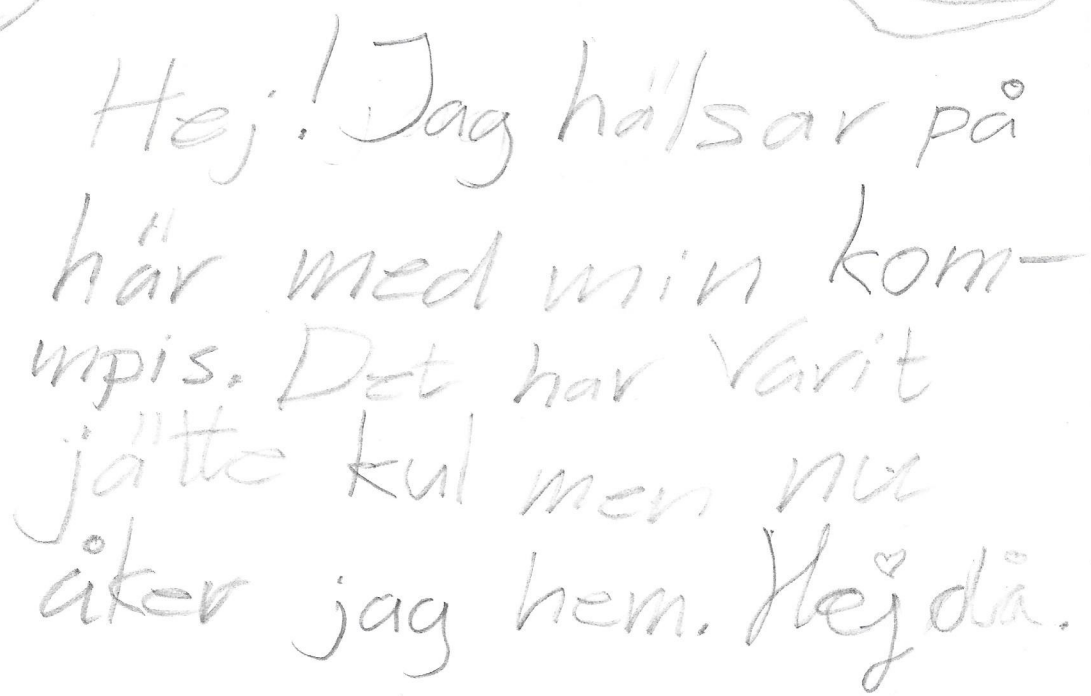 Hej! Jag hälsar på
här med min kom-
mpis. Det har varit
jätte kul men nu
åker jag hem. Hej då.